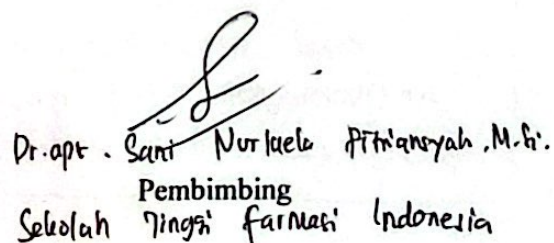 Dr. apt. Sani Nurlaela Fitriansyah, M.Si.
Pembimbing
Sekolah Tinggi Farmasi Indonesia